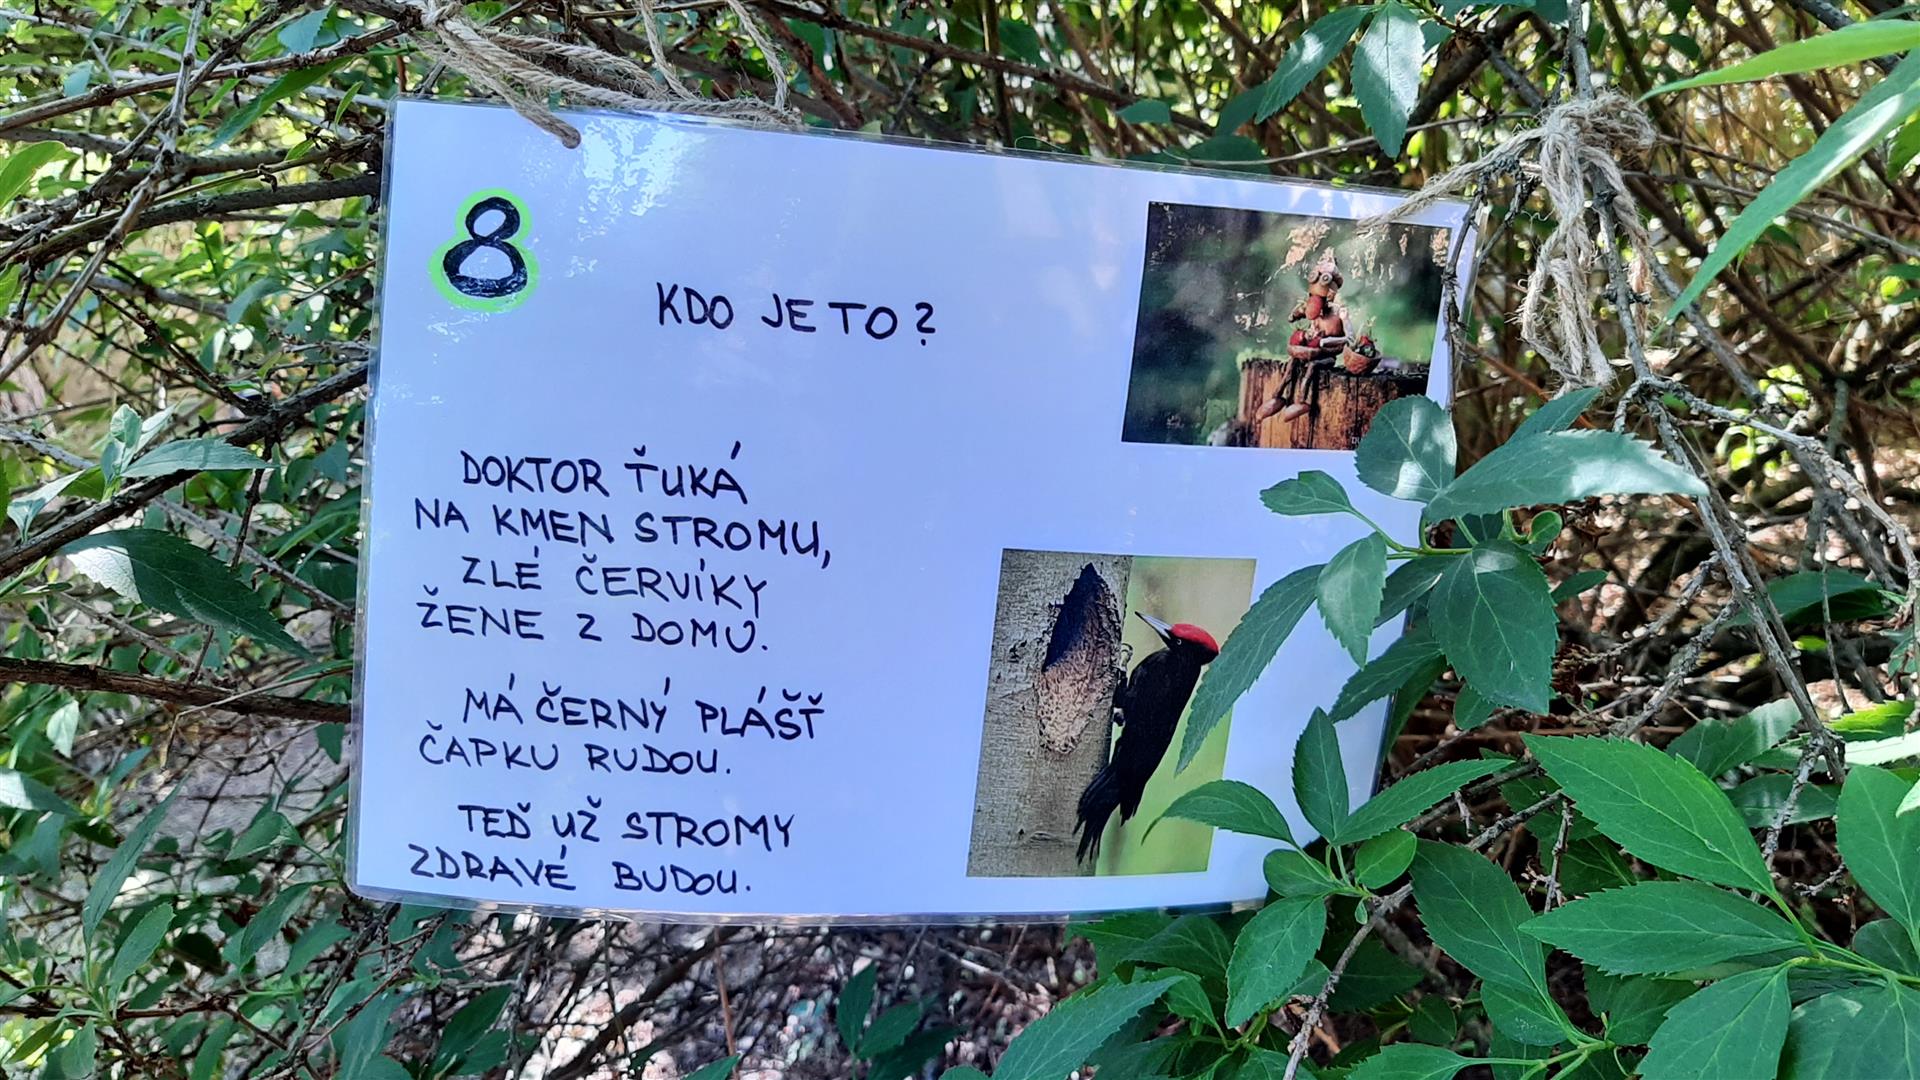 8
KDO JE TO?
DOKTOR ŤUKÁ
NA KMEN STROMU,
ZLÉ ČERVÍKY
ŽENE Z DOMU.
MÁ ČERNÝ PLÁŠŤ
ČAPKU RUDOU.
TEĎ UŽ STROMY
ZDRAVÉ BUDOU.